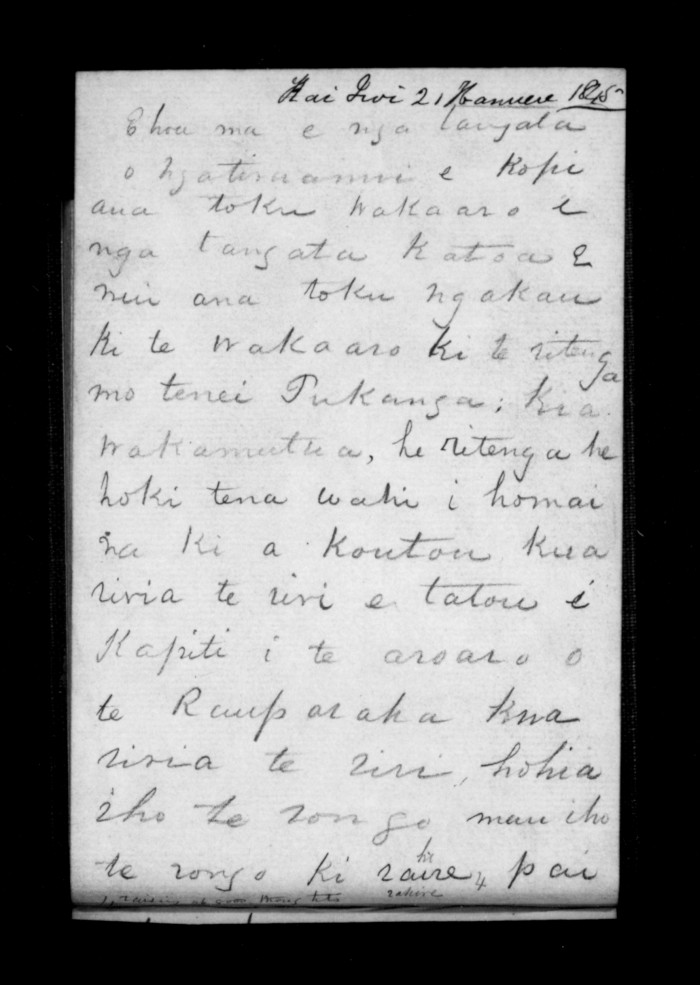 Kai Iwi 21 Hanuere 1845
E hoa ma e nga tangata
o Ngatiruanui e kopi
ana toku wakaaro e
nga tangata katoa E
nui ana toku ngakau
ki te wakaaro ki te ritenga
mo tenei Pukanga; kia
wakamutua, he ritenga he
hoki tena wahi i homai
na ki a koutou kua
riria te riri e tatou i
Kapiti i te aroaro o
te Rauparaha kua
riria te riri, hohia
iho te rongo mau iho
te rongo ki raire, pai